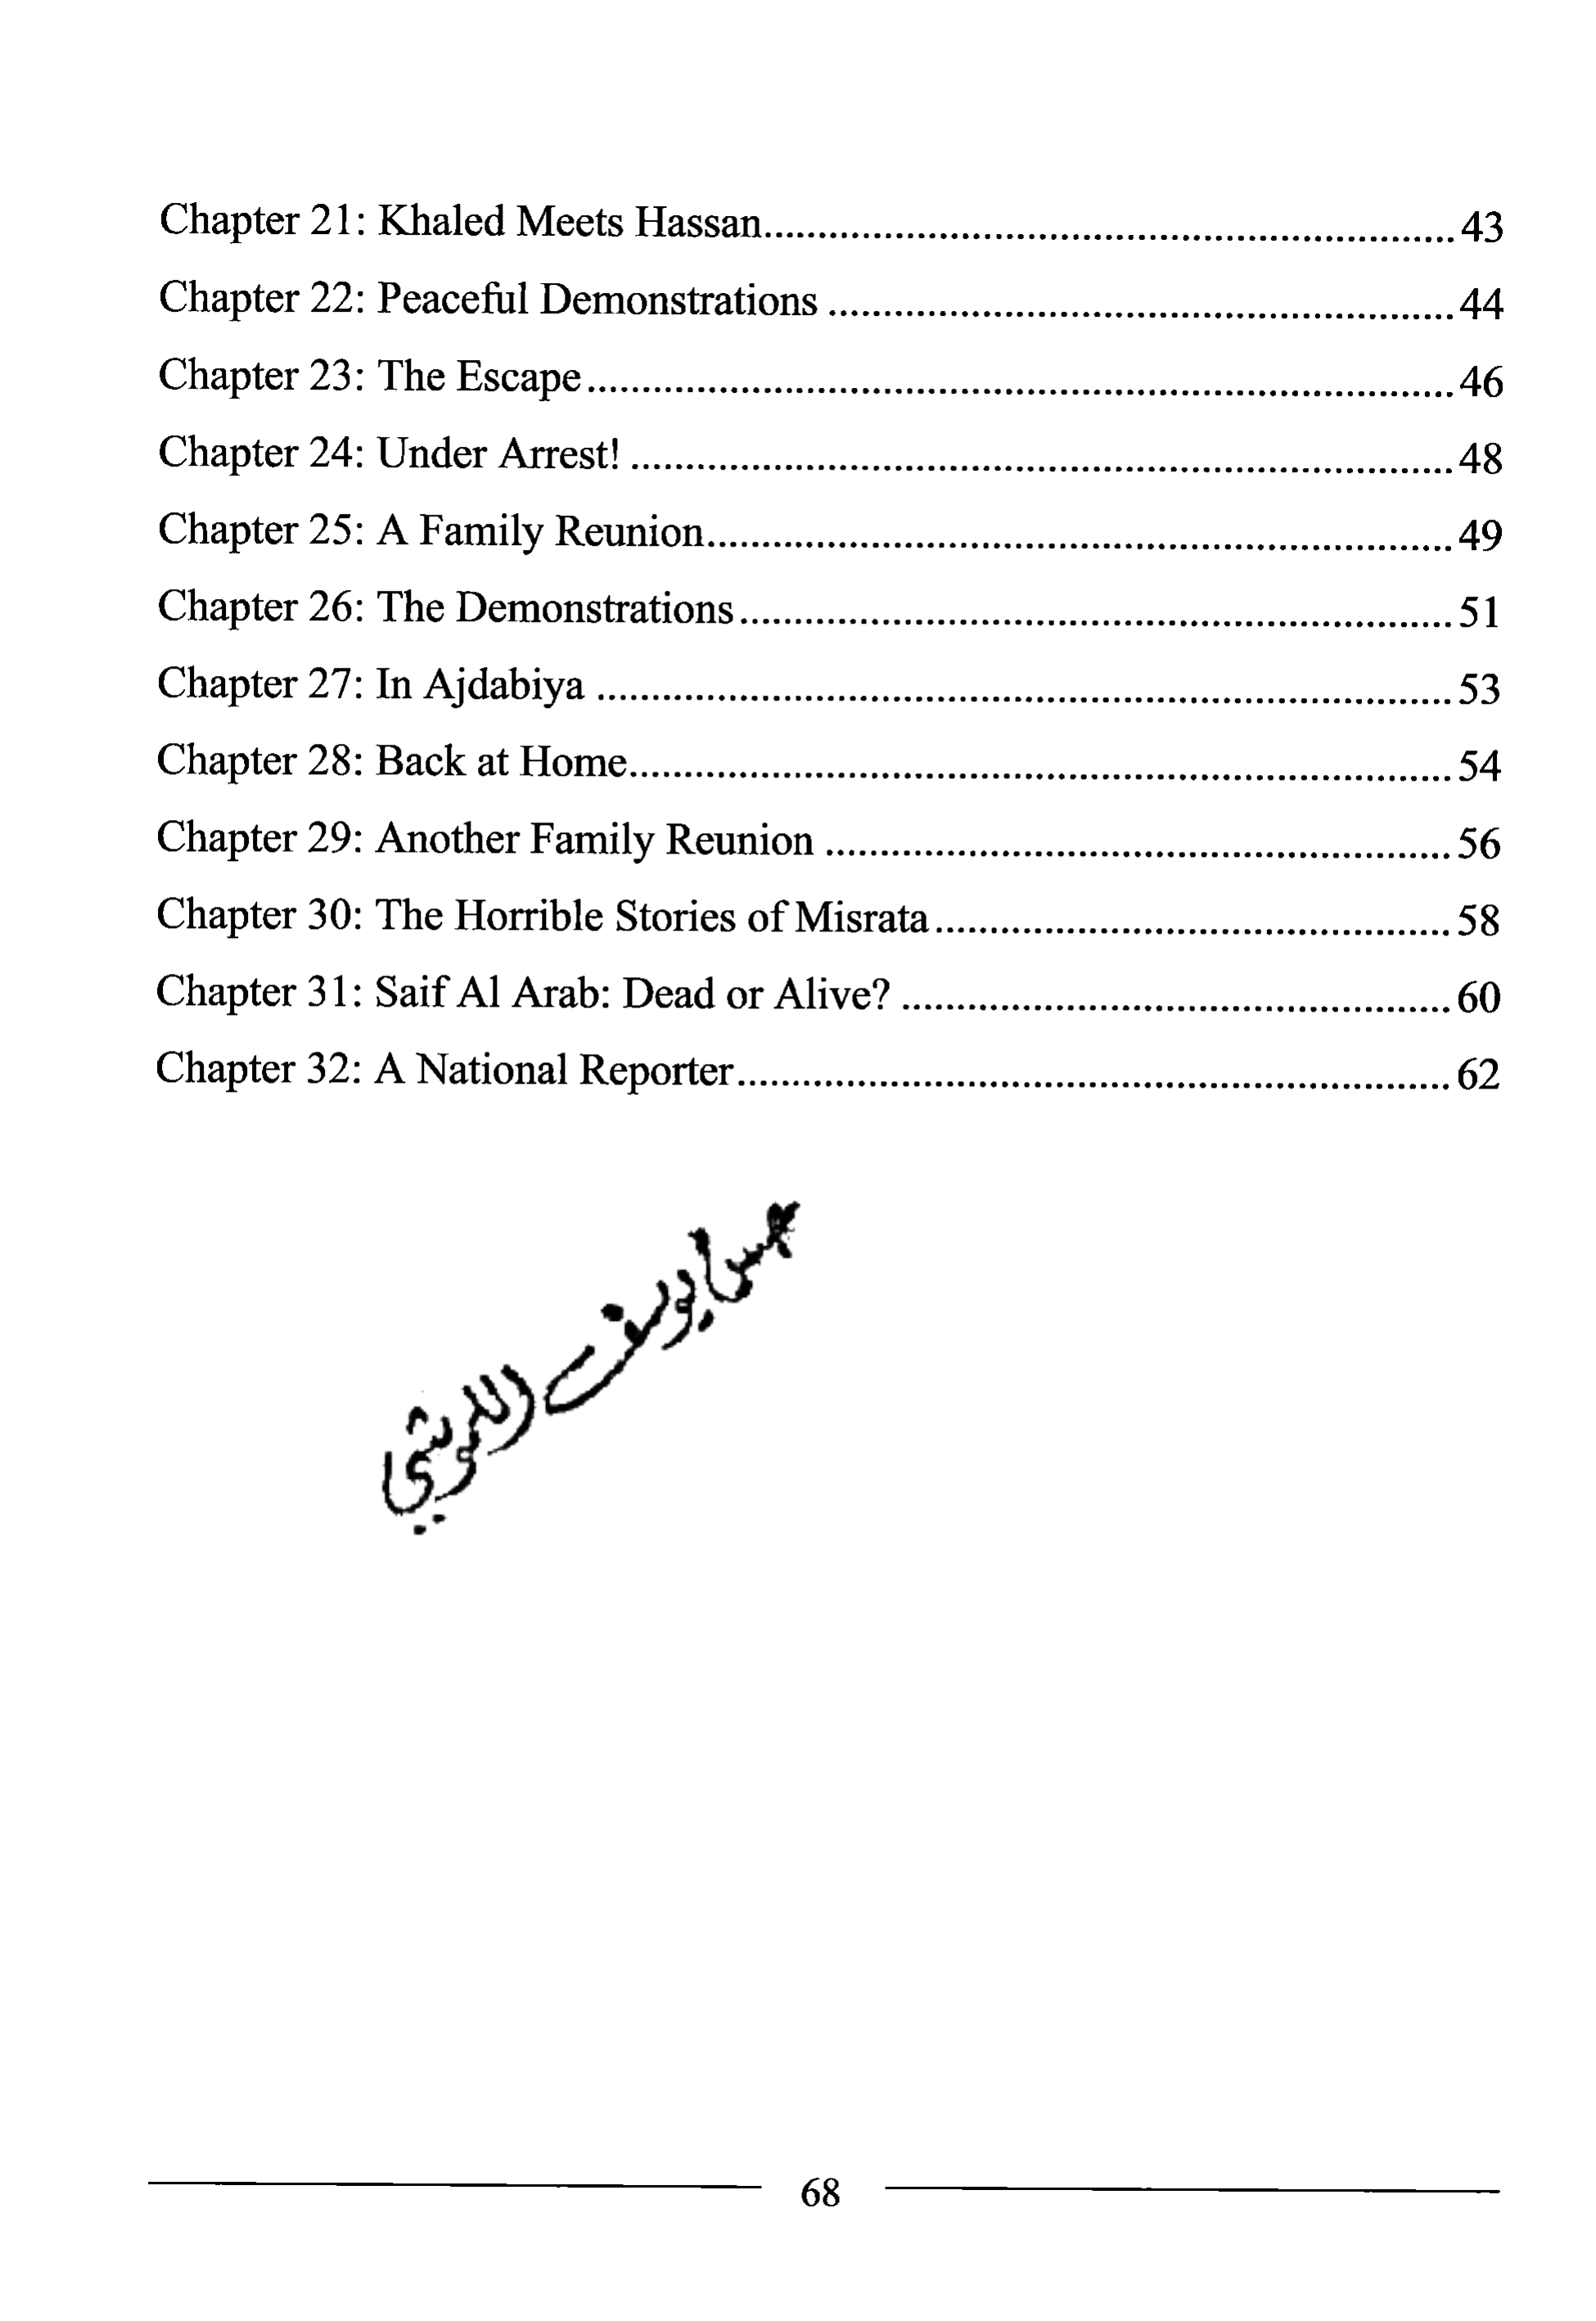 Chapter 21: Khaled Meets Hassan.......................................................................43
Chapter 22: Peaceful Demonstrations ................................................................44
Chapter 23: The Escape.........................................................................................46
Chapter 24: Under Arrest! ....................................................................................48
Chapter 25: A Family Reunion............................................................................49
Chapter 26: The Demonstrations.........................................................................51
Chapter 27: In Ajdabiya .......................................................................................53
Chapter 28: Back at Home....................................................................................54
Chapter 29: Another Family Reunion ................................................................56
Chapter 30: The Horrible Stories of Misrata.....................................................58
Chapter 31: Saif Al Arab: Dead or Alive? ........................................................60
Chapter 32: A National Reporter.........................................................................62
يوسف
68